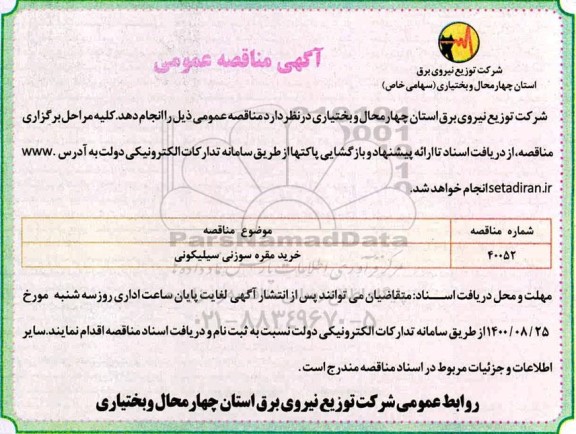 شرکت توزیع نیروی برق
استان چهارمحال و بختیاری (سهامی خاص)
آگهی مناقصه عمومی
شرکت توزیع نیروی برق استان چهارمحال و بختیاری در نظر دارد مناقصه عمومی ذیل را انجام دهد. کلیه مراحل برگزاری
مناقصه، از دریافت اسناد تا ارائه پیشنهاد و بازگشایی پاکتها از طریق سامانه تدارکات الکترونیکی دولت به آدرس www.
setadiran.ir انجام خواهد شد.
شماره مناقصه موضوع مناقصه
۴۰۰۵۲ خرید مقره سوزنی سیلیکونی
ParsNamadData
۰۲۱-۸۸۳۴۹۶۷۰-۵
مهلت و محل دریافت اسـناد: متقاضیان می توانند پس از انتشار آگهی لغایت پایان ساعت اداری روز سه شنبه مورخ
۱۴۰۰/۰۸/۲۵ از طریق سامانه تدارکات الکترونیکی دولت نسبت به ثبت نام و دریافت اسناد مناقصه اقدام نمایند. سایر
اطلاعات و جزئیات مربوط در اسناد مناقصه مندرج است.
روابط عمومی شرکت توزیع نیروی برق استان چهارمحال و بختیاری